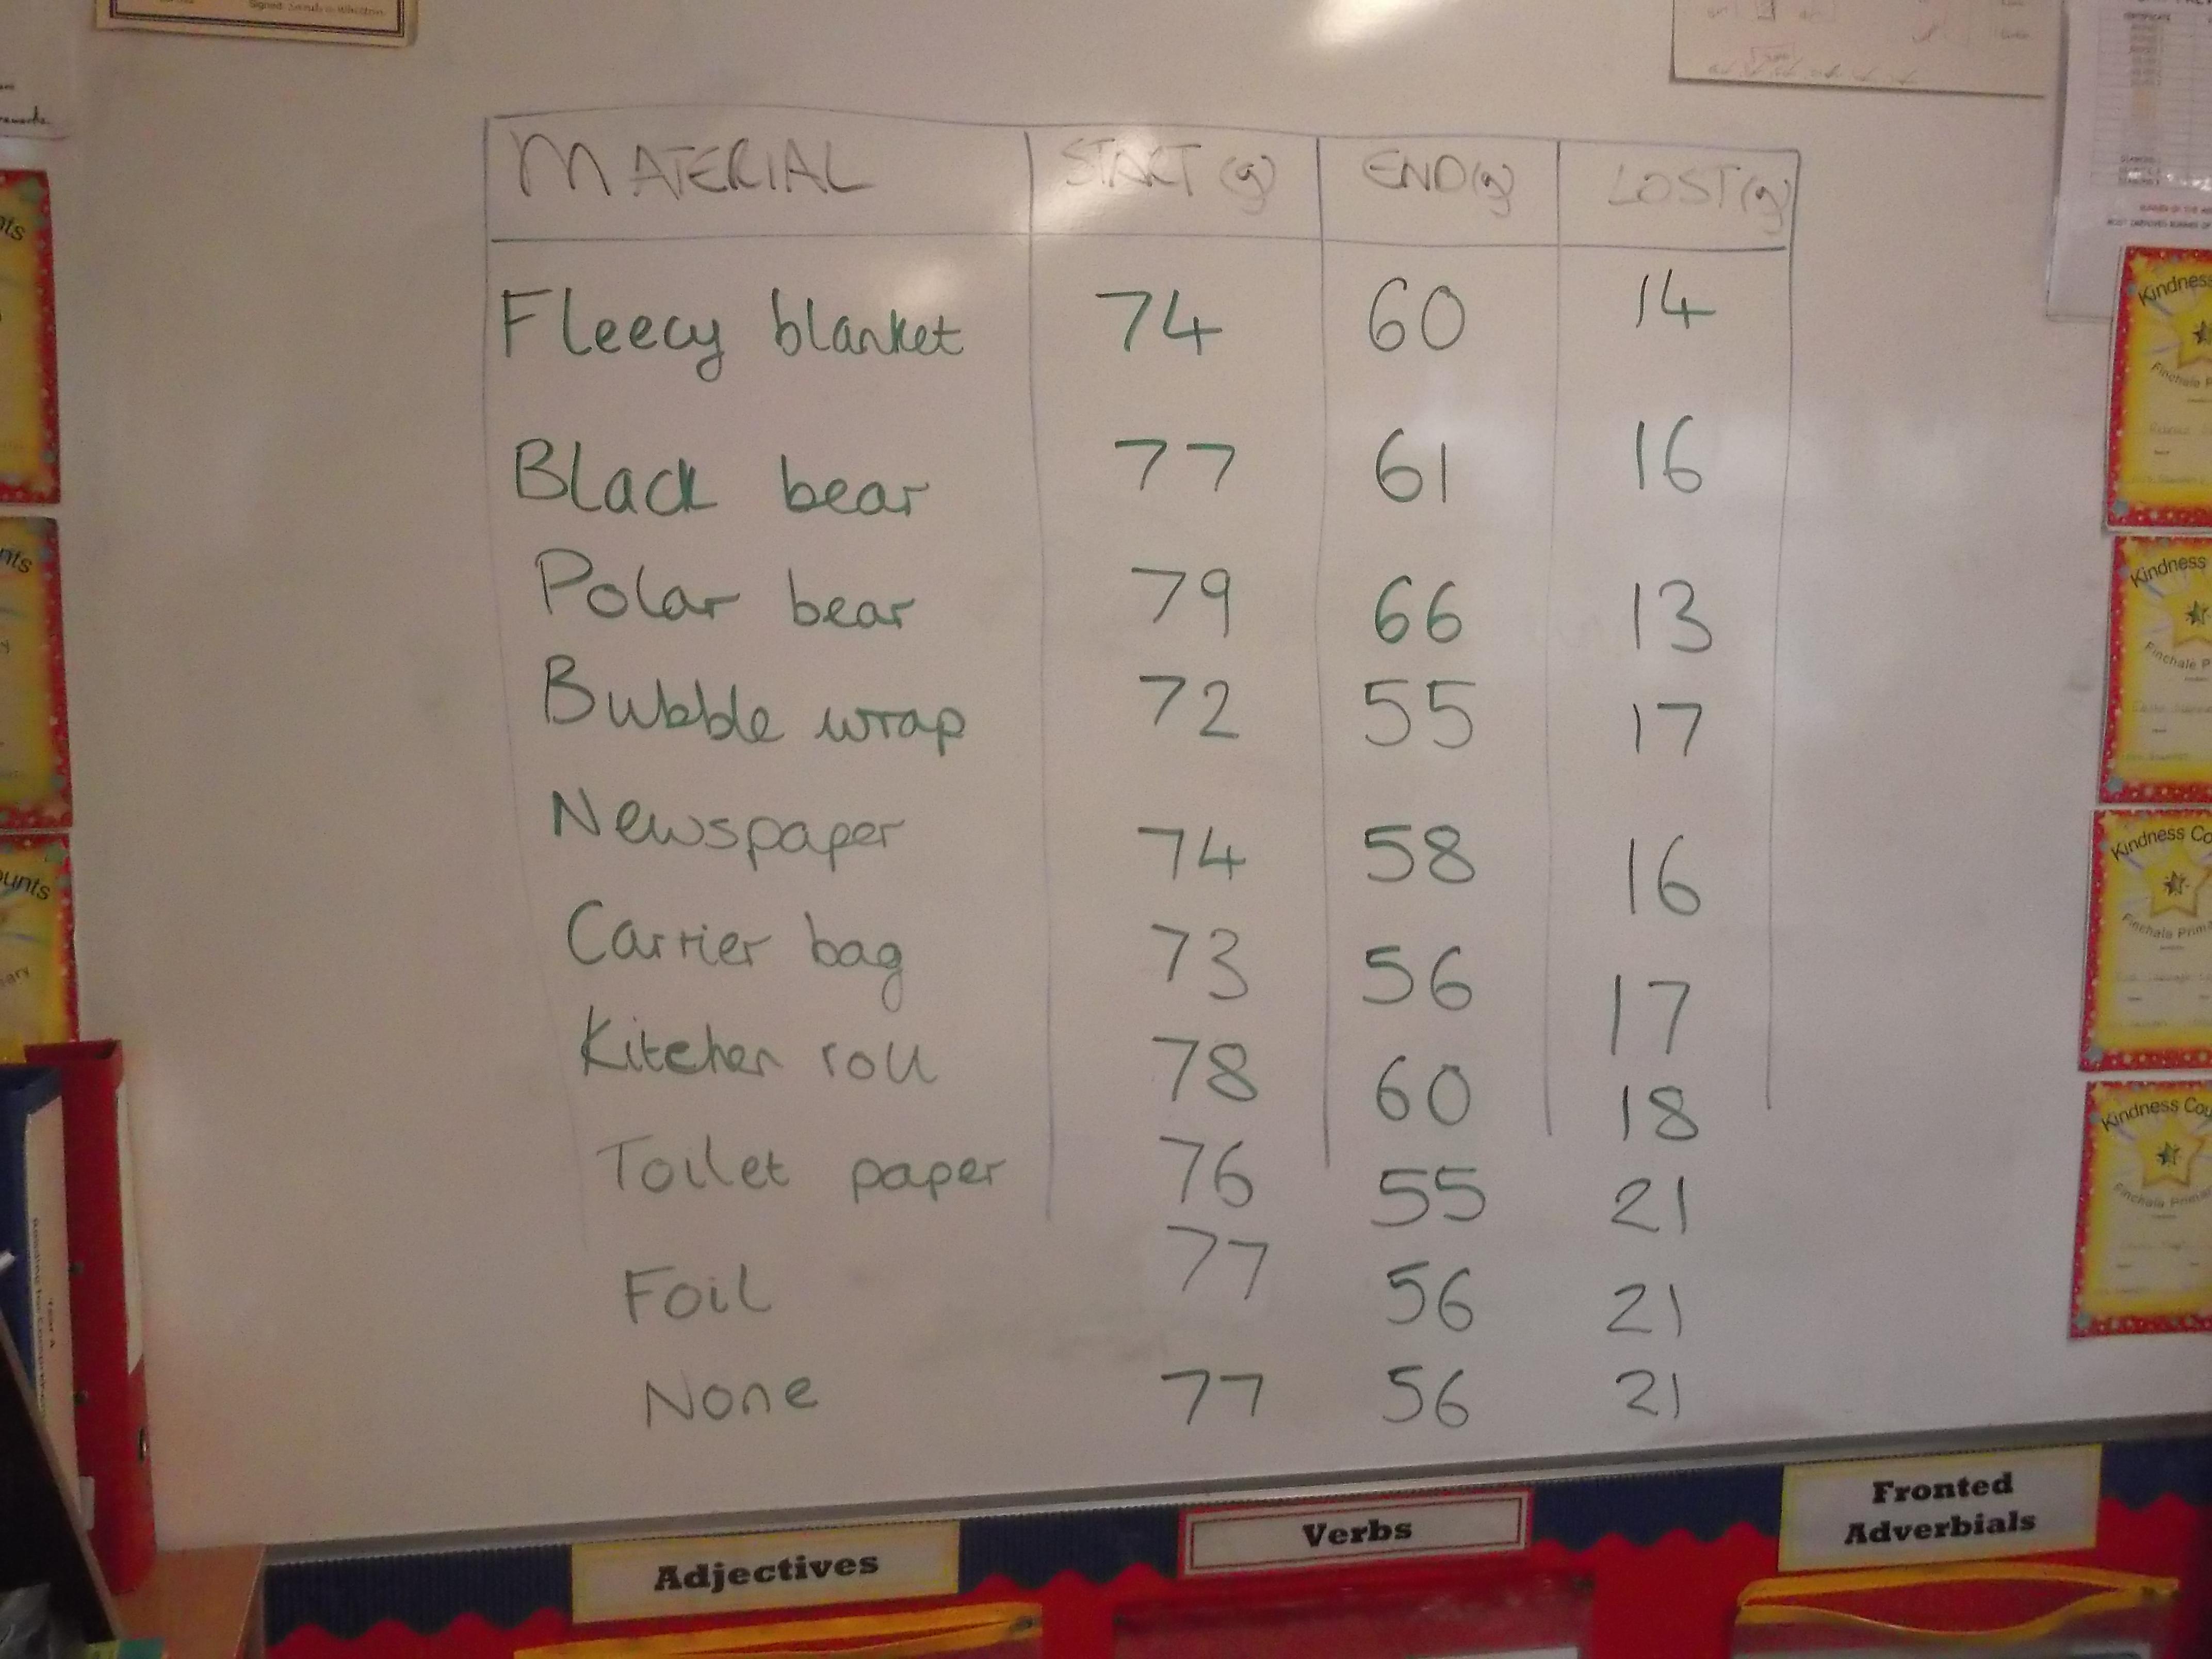 Signed
MATERIAL START (g) END(g) LOST(g)
Fleecy blanket 74 60 14
Black bear 77 61 16
Polar bear 79 66 13
Bubble wrap 72 55 17
Newspaper 74 58 16
Carrier bag 73 56 17
Kitchen roll 78 60 18
Toilet paper 76 55 21
Foil 77 56 21
None 77 56 21
Kindness
Finchale P
Kindness
Finchale P
Kindness Co
Finchale Prima
Kindness Cou
Finchale Prima
Adjectives
Verbs
Fronted
Adverbials